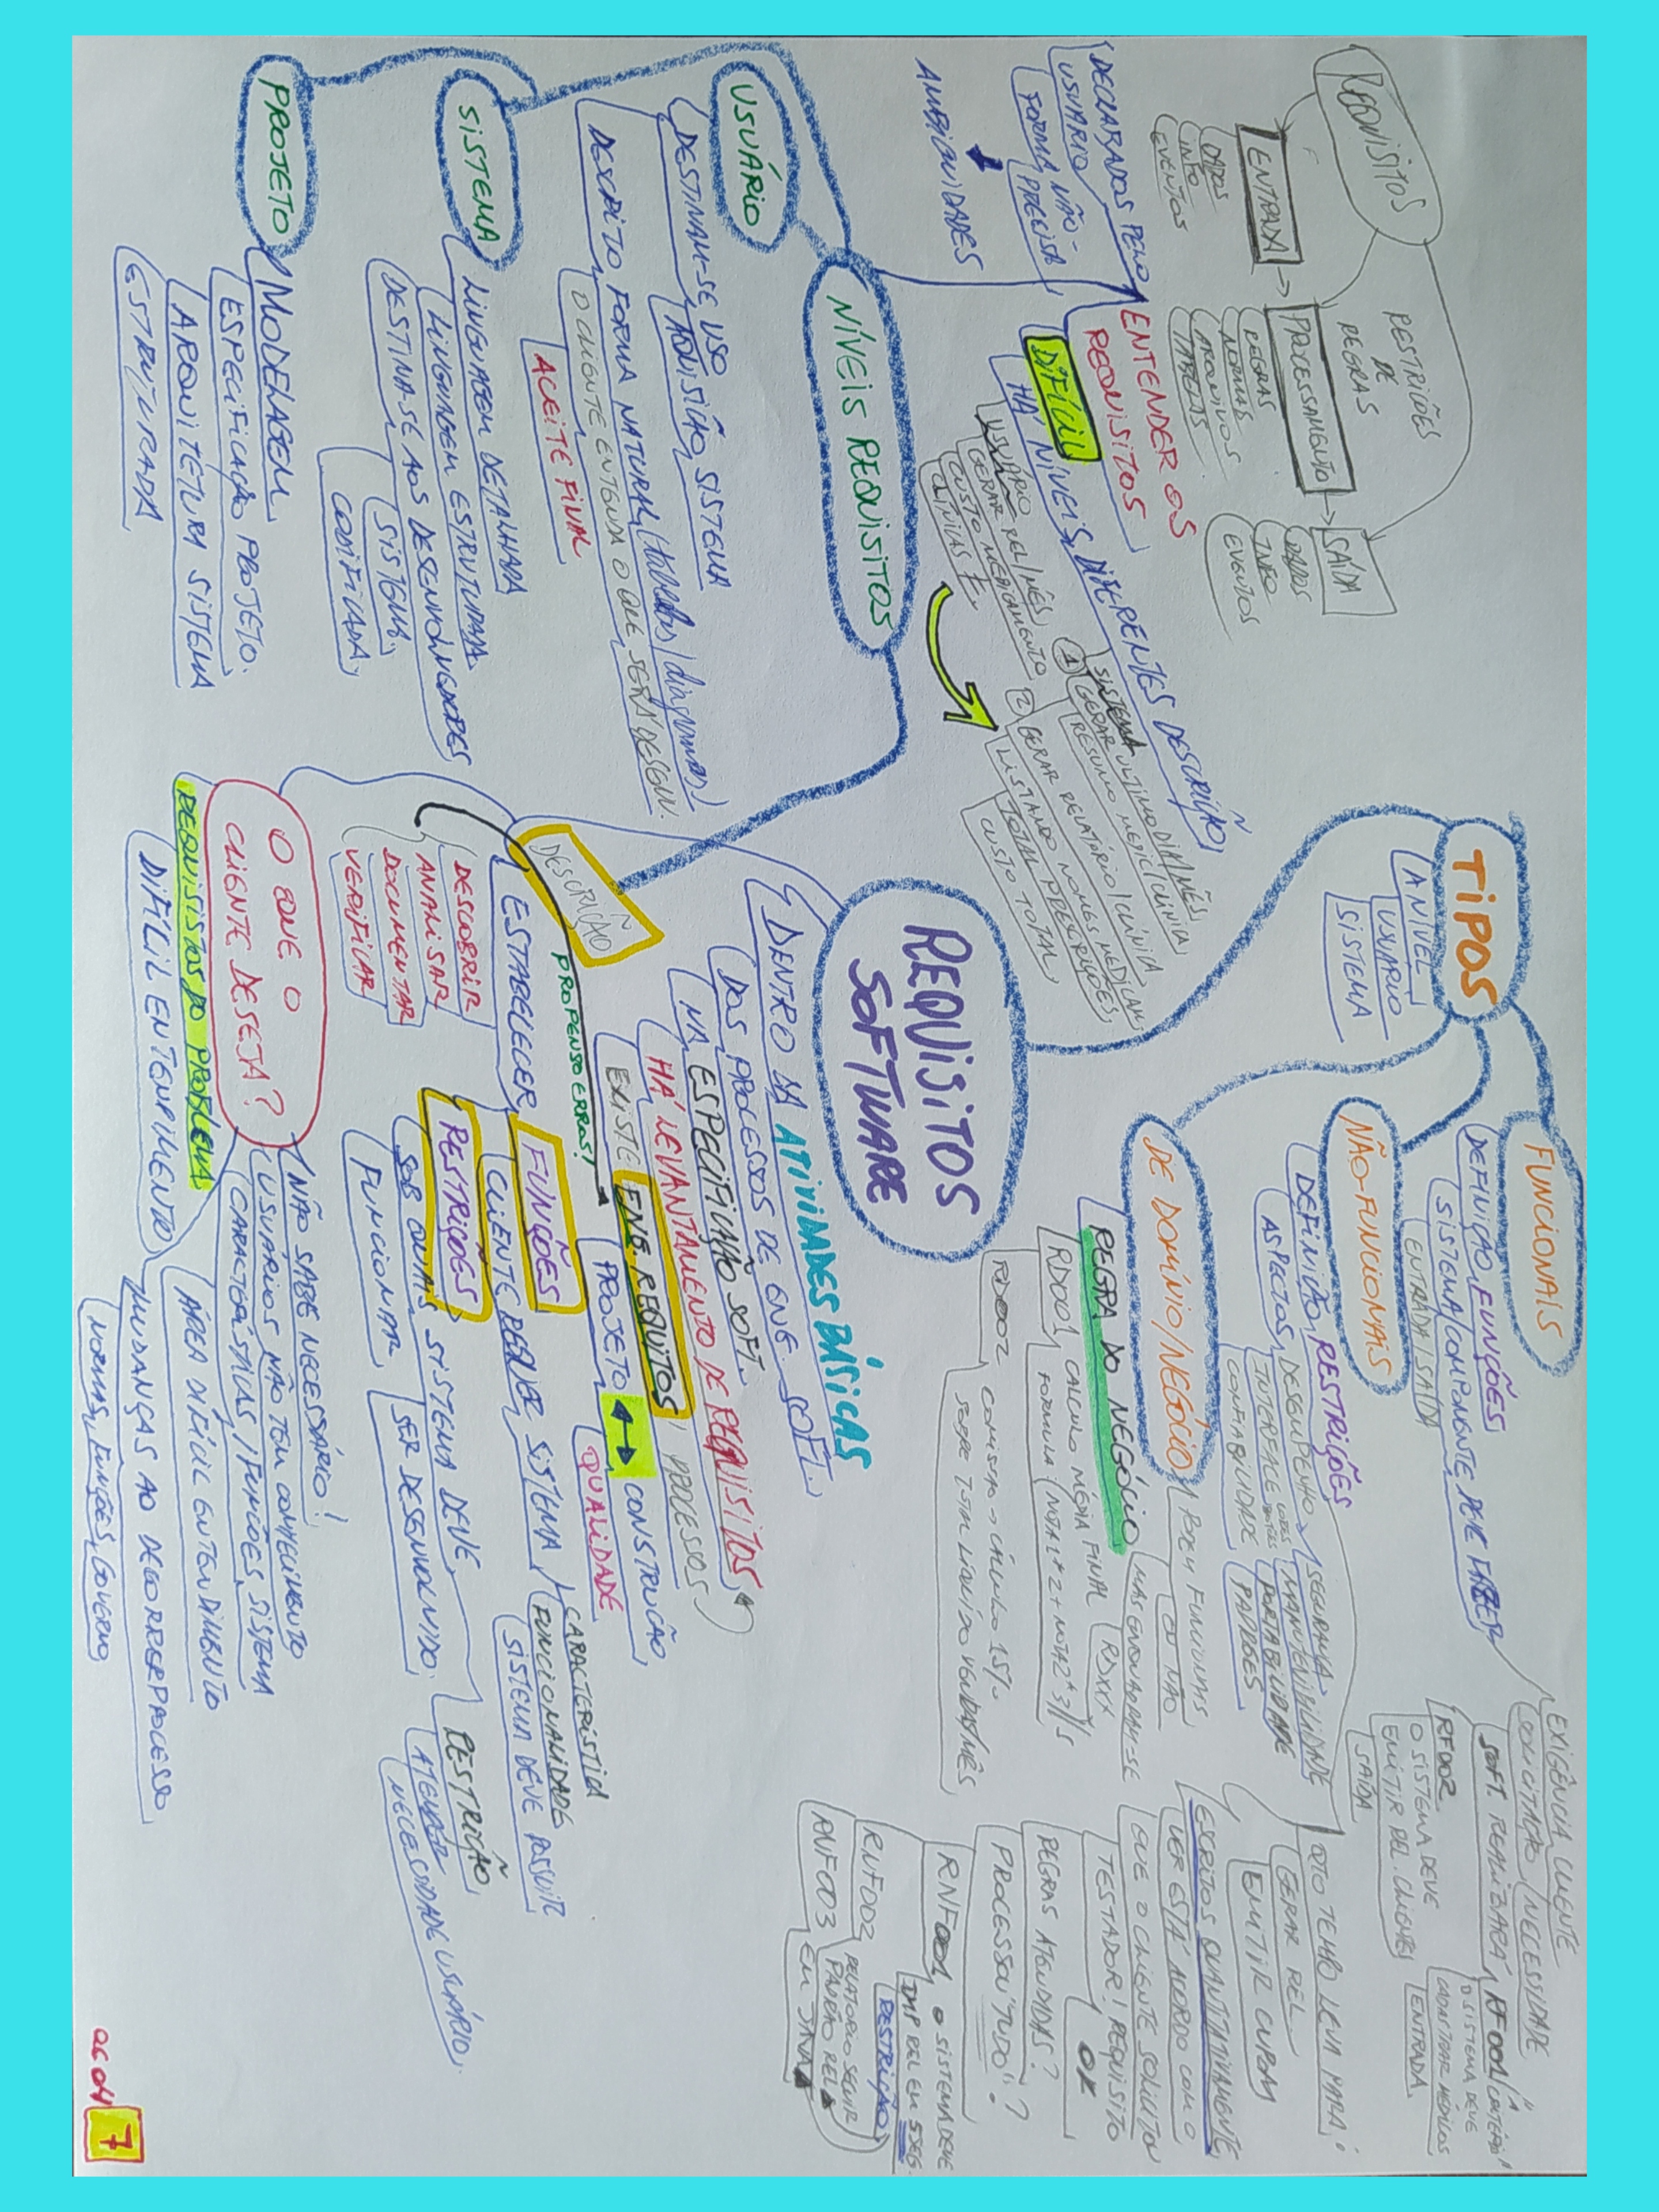 REQUISITOS SOFTWARE
TIPOS
A NÍVEL
USUÁRIO
SISTEMA
FUNCIONAIS
DEFINIÇÃO FUNÇÕES
SISTEMA/COMPONENTE DEVE FAZER
ENTRADA/SAÍDA
EXIGÊNCIA CLIENTE
SOLICITAÇÃO NECESSIDADE
SOFT. REALIZARÁ
RF001 "CRITÉRIO"
O SISTEMA DEVE
CADASTRAR MÉDICOS
ENTRADA
RF002
O SISTEMA DEVE
EMITIR REL. CLIENTES
SAÍDA
NÃO-FUNCIONAIS
DEFINIÇÃO RESTRIÇÕES
ASPECTOS
DESEMPENHO
INTERFACE CORES BOTÕES
CONFIABILIDADE
SEGURANÇA
MANUTENIBILIDADE
PORTABILIDADE
PADRÕES
QTO TEMPO LEVA PARA:
GERAR REL.
EMITIR CUPOM
ESCRITOS QUANTITATIVAMENTE
VER ESTÁ ACORDO COM O
QUE O CLIENTE SOLICITOU
TESTADOR! REQUISITO
OK
REGRAS ATENDIDAS?
PROCESSOU "TUDO"?
RNF001 O SISTEMA DEVE
IMP REL EM 5SEG.
RESTRIÇÃO
RNF002 RELATORIO SEGUIR
PADRÃO REL
RNF003 EM JAVA
DE DOMÍNIO/NEGÓCIO
PODEM FUNCIONAIS
OU NÃO
MAS ENQUADRAM-SE
RDXXX
REGRA DO NEGÓCIO
RD001 CALCULO MÉDIA FINAL
FORMULA: (NOTA1*2+NOTA2*3)/5
RD002 COMISSAO → CÁLCULO 15%
SOBRE TOTAL LÍQUIDO VENDAS/MÊS
REQUISITOS
RESTRIÇÕES
DE
REGRAS
ENTRADA
DADOS
INFO
EVENTOS
PROCESSAMENTO
REGRAS
NORMAS
ARQUIVOS
TABELAS
SAÍDA
DADOS
INFO
EVENTOS
ENTENDER OS
REQUISITOS
DIFÍCIL
HÁ NÍVEIS DIFERENTES DESCRIÇÃO
DECLARADOS PELO
USUÁRIO
FORMA NÃO-
PRECISA
AMBIGUIDADES
USUÁRIO
GERAR REL/MÊS
CUSTO MEDICAMENTO
CLÍNICAS
SISTEMA
1 GERAR ULTIMO DIA/MÊS
RESUMO MEDIC/CLÍNICA
2 GERAR RELATÓRIO/CLÍNICA
LISTANDO NOMES MEDICAM.
TOTAL PRESCRIÇÕES
CUSTO TOTAL
NÍVEIS REQUISITOS
USUÁRIO
DESTINAM-SE USO
AQUISIÇÃO SISTEMA
DESCRITO FORMA NATURAL (tabelas/diagramas)
O CLIENTE ENTENDA O QUE SERÁ DESENV.
ACEITE FINAL
SISTEMA
LINGUAGEM DETALHADA
LINGUAGEM ESTRUTURADA
DESTINA-SE AOS DESENVOLVEDORES
SISTEMA
CODIFICADA
PROJETO
MODELAGEM
ESPECIFICAÇÃO PROJETO
ARQUITETURA SISTEMA
ESTRUTURADA
DENTRO DA ATIVIDADES BÁSICAS
DOS PROCESSOS DE ENG. SOFT.
NA ESPECIFICAÇÃO SOFT.
HÁ LEVANTAMENTO DE REQUISITOS
EXISTE ENG. REQUITOS PROCESSOS
PROJETO CONSTRUÇÃO
QUALIDADE
PROPENSO ERROS!
DESCRIÇÃO
ESTABELECER
DESCOBRIR
ANALISAR
DOCUMENTAR
VERIFICAR
FUNÇÕES
CLIENTE REQUER SISTEMA
CARACTERÍSTICA
FUNCIONALIDADE
SISTEMA DEVE POSSUIR
RESTRIÇÕES
SOB QUAIS SISTEMA DEVE
FUNCIONAR
SER DESENVOLVIDO
RESTRIÇÃO
ATENDER
NECESSIDADE USUÁRIO
O QUE O
CLIENTE DESEJA?
REQUISISTOS DO PROBLEMA
DIFÍCIL ENTENDIMENTO
NÃO SABE NECESSÁRIO!
USUÁRIOS NÃO TEM CONHECIMENTO
CARACTERÍSTICAS/FUNÇÕES SISTEMA
ÁREA DIFÍCIL ENTENDIMENTO
MUDANÇAS AO DECORRER PROCESSO
NORMAS, FUNÇÕES, GOVERNO
7